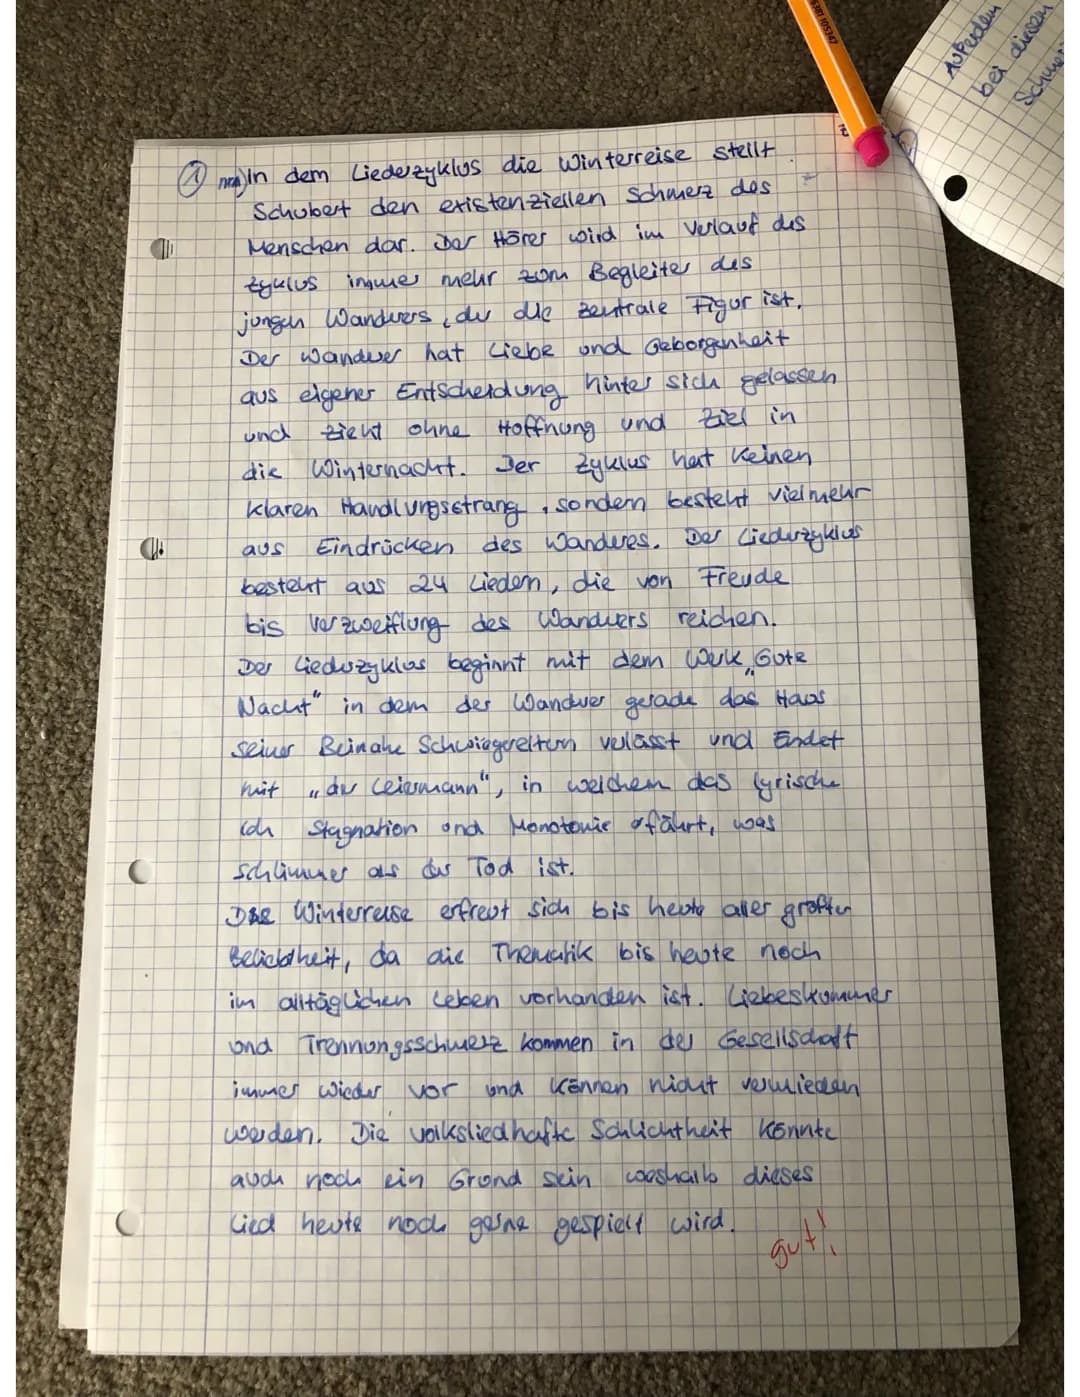 ① In dem Liederzyklus die Winterreise stellt
Schubert den existenziellen Schmerz des
Menschen dar. Der Hörer wird im Verlauf des
Zyklus immer mehr zum Begleiter des
jungen Wanderers, der die zentrale Figur ist.
Der Wanderer hat Liebe und Geborgenheit
aus eigener Entscheidung hinter sich gelassen
und zieht ohne Hoffnung und Ziel in
die Winternacht. Der Zyklus hat keinen
klaren Handlungsstrang, sondern besteht vielmehr
aus Eindrücken des Wanderes. Der Liederzyklus
besteht aus 24 Liedern, die von Freude
bis Verzweiflung des Wanderers reichen.
Der Liederzyklus beginnt mit dem Werk „Gute
Nacht" in dem der Wanderer gerade das Haus
seiner Beinahe Schwiegereltern verlässt und Endet
mit „der Leiermann", in welchem das lyrische
Ich Stagnation und Monotonie erfährt, was
schlimmer als der Tod ist.
Die Winterreise erfreut sich bis heute aller größter
Beliebtheit, da die Thematik bis heute noch
im alltäglichen Leben vorhanden ist. Liebeskummer
und Trennungsschmerz kommen in der Gesellschaft
immer wieder vor und können nicht vermieden
werden. Die volksliedhafte Schlichtheit könnte
auch noch ein Grund sein weshalb dieses
Lied heute noch gerne gespielt wird.
gut!
Außerdem
bei diesem